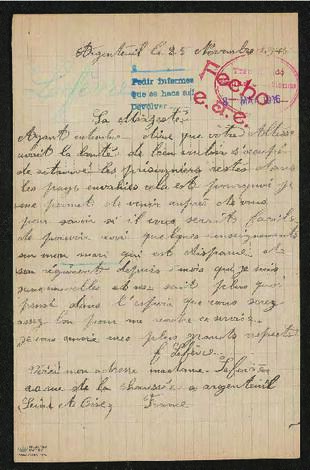 Argenteuil le 25 Novembre 1915
Lefèvre
Pedir informes
que se hace así
Devolver.
Fecho
8 MAR 1916
Sa Majesté
Ayant entendu dire que votre Altesse
aurait la bonté de bien vouloir s'occuper
de retrouver les prisonniers restés dans
les pays envahies cela est pourquoi je
me permet de venir auprès de vous
pour savoir si il vous serait facile
de pouvoir avoir quelques renseignements
sur mon mari qui est disparu de
son régiment depuis mois que je suis
sans nouvelles et ne sait plus quoi
pensé dans l'espoir que vous serez
assez bon pour me rendre ce service
je vous envoie mes plus grands respects
Lefèvre
Voici mon adresse madame Lefèvre
rue de la chaussée a argenteuil
Seine et Oise France